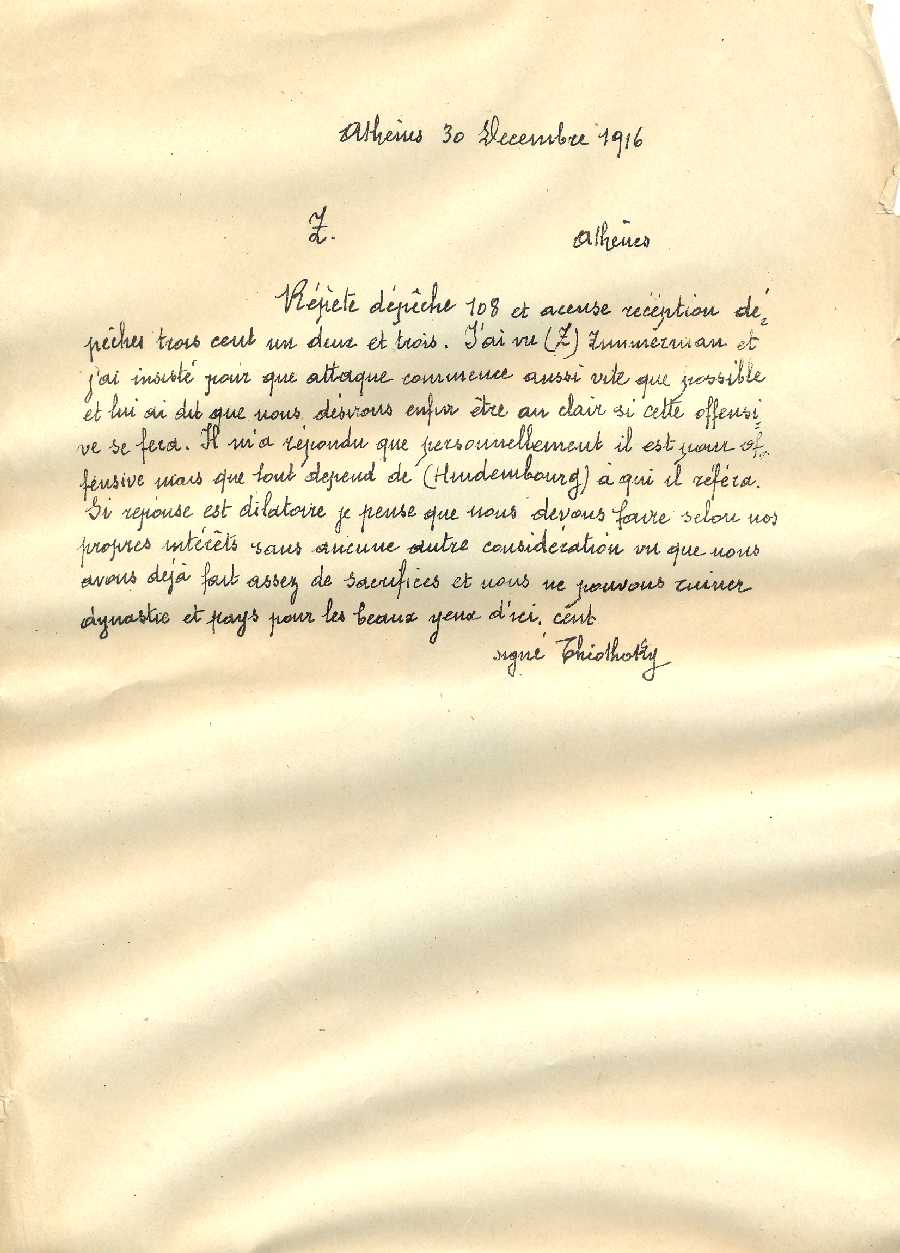 Athènes 30 Decembre 1916
Z. Athènes
Répète dépêche 108 et acense recéption dé=
pêches trois cent un deux et trois. J'ai vu (Z) Zimmerman et
j'ai insisté pour que attaque commence aussi vite que possible
et lui ai dit que nous désirons enfin être au clair si cette offensi=
ve se fera. Il m'a répondu que personnellement il est pour of=
fensive mais que tout depend de (Hindembourg) à qui il référa.
Si réponse est dilatoire je pense que nous devons faire selon nos
propres intérêts sans aucune autre considération vu que nous
avons déjà fait assez de sacrifices et nous ne pouvons ruiner
dynastie et pays pour les beaux yeux d'ici. cent
signé Théothoky